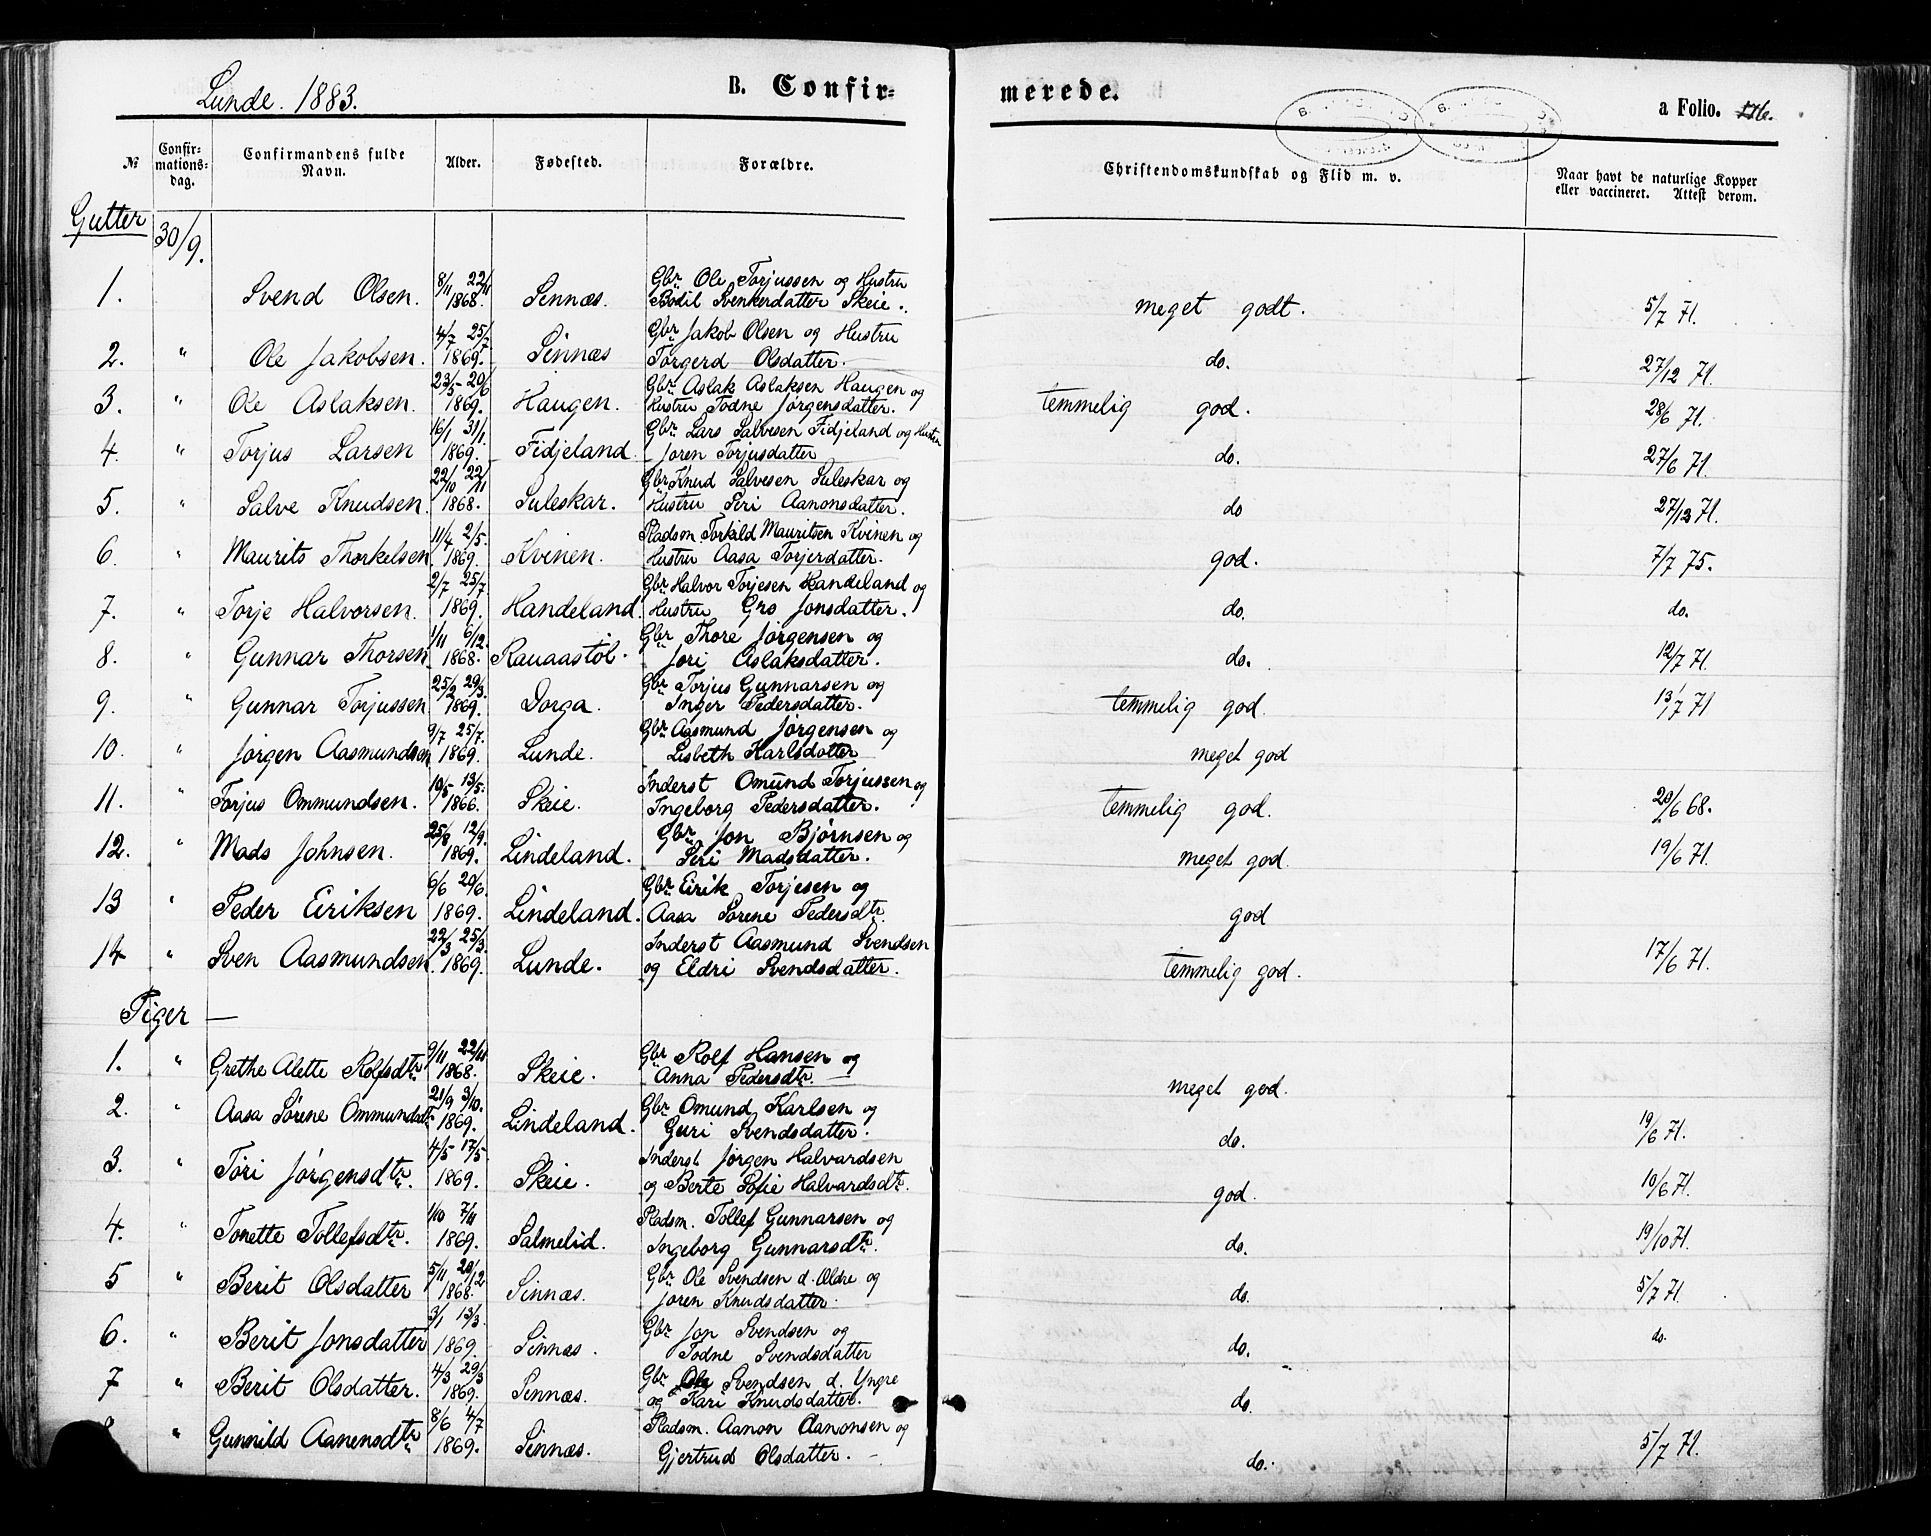 Lunde. 1883.
B. Confir-
merede.
a Folio. 176.
№
Confir-
mations-
dag.
Confirmandens fulde
Navn.
Alder.
Fødested.
Forældre.
Christendomskundskab og Flid m. v.
Naar havt de naturlige Kopper
eller vaccineret. Attest derom.
Gutter
30/9.
1. Svend Olsen. 8/11 22/11 1868. Sinnæs. Gbr. Ole Torjussen og Hustru
Bodil Svenkerdatter Skeie. meget godt. 5/7 71.
2. " Ole Jakobsen. 4/7 25/7 1869. Sinnæs Gbr Jakob Olsen og Hustru
Torgerd Olsdatter. do. 27/12 71.
3. " Ole Aslaksen. 23/5 - 20/6 1869. Haugen. Gbr. Aslak Aslaksen Haugen og
Hustru Todne Jørgensdatter. temmelig god. 28/6 71.
4. " Torjus Larsen 16/1 31/1. 1869. Fidjeland. Gbr. Lars Salvesen Fidjeland og Hustru
Joren Torjusdatter do. 27/6 71.
5. " Salve Knudsen. 22/10 22/11 1868. Suleskar. Gbr. Knud Salvesen Suleskar og
Hustru Siri Aanonsdatter. do 27/12 71.
6. " Maurits Thorkelsen. 11/4 2/5. 1869. Kvinen. Pladsm Torkild Mauritsen Kvinen og
Hustru Aasa Torjerdatter. god. 7/7 75.
7. " Torje Halvorsen. 2/7 25/7 1869. Handeland. Gbr. Halvor Torjesen Handeland og
Hustru Gro Jonsdatter. do. do.
8. " Gunnar Thorsen 1/11 6/12. 1868. Rauaastøl. Gbr Thore Jørgensen og
Jori Aslaksdatter. do. 12/7 71.
9. " Gunnar Torjussen 25/2 29/3. 1869. Dorga. Gbr Torjus Gunnarsen og
Inger Pedersdatter. temmelig god. 13/7 71
10. " Jørgen Aasmundsen 9/7 25/7. 1869. Lunde. Gbr. Aasmund Jørgensen og
Lisbeth Karlsdatter meget god
11. " Torjus Ommundsen. 10/5 - 13/5. 1866. Skeie. Inderst Omund Torjussen og
Ingeborg Pedersdatter. temmelig god. 20/6 68.
12. " Mads Johnsen. 25/8 12/9. 1869. Lindeland. Gbr. Jon Bjørnsen og
Siri Madsdatter. meget god. 19/6 71.
13 " Peder Eiriksen 6/6 20/6. 1869. Lindeland. Gbr. Eirik Torjesen og
Aasa Sørene Pedersdtr. god
14 " Sven Aasmundsen 22/3 25/3. 1869. Lunde. Inderst Aasmund Svendsen
og Eldri Svendsdatter. temmelig god. 17/6 71.
Piger —
1. " Grethe Alette Rolfsdtr 9/11 22/11 1868. Skeie. Gbr Rolf Hansen og
Anna Pedersdtr. meget god.
2. " Aasa Sørene Ommundsdtr 21/9 3/10. 1869. Lindeland. Gbr. Omund Karlsen og
Guri Svendsdatter. do. 19/6 71.
3. " Tori Jørgensdtr. 4/5 - 17/5. 1869. Skeie. Inderst Jørgen Halvardsen
og Berte Sofie Halvardsdtr. god. 10/6 71.
4. " Tonette Tollefsdtr. 1/10 7/11 1869. Salmelid. Pladsm. Tollef Gunnarsen og
Ingeborg Gunnarsdtr. do. 19/10 71.
5 " Berit Olsdatter 5/11 20/12 1868. Sinnæs. Gbr. Ole Svendsen d. Ældre og
Joren Knudsdatter. do. 5/7 71.
6. " Berit Jonsdatter 3/1 13/3. 1869. Sinnæs. Gbr. Jon Svendsen og
Todne Svendsdatter do. do.
7 " Berit Olsdatter. 4/3 29/3 1869. Sinnæs. Gbr. Ole Svendsen d. Yngre
og Kari Knudsdatter. do.
" Gunnild Aanensdtr 8/6 4/7 1869. Sinnæs. Pladsm. Aanon Aanonsen og
Gjertrud Olsdatter. do. 5/7 71.